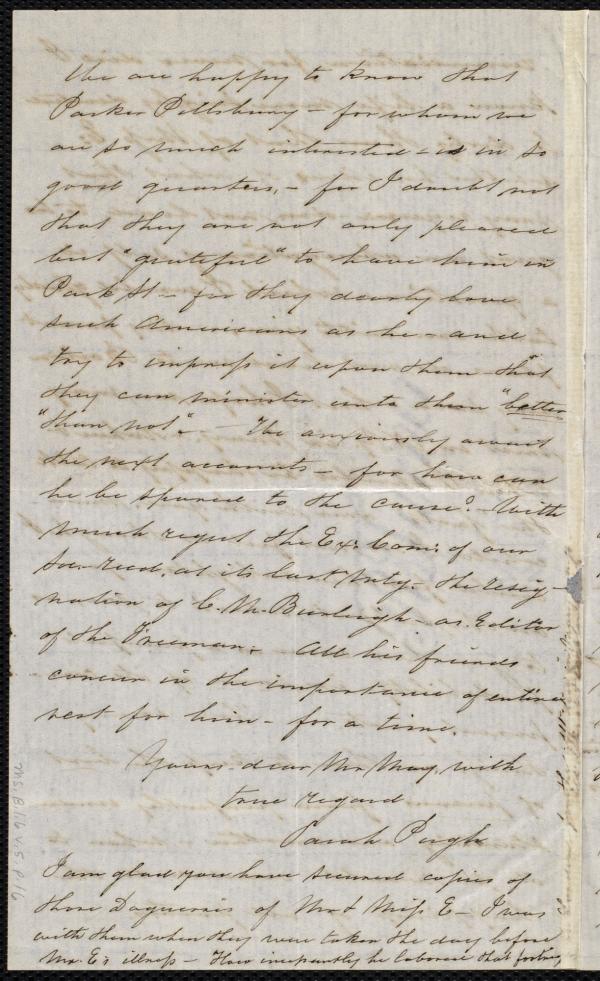 We are happy to know that
Parker Pillsbury – for whom we
are so much interested – is in so
good quarters, – for I doubt not
that they are not only pleased
but "grateful" to have him in
Park St – for they dearly love
such Americans as he – and
try to impress it upon them that
they can minister unto them "better
"than not". – We anxiously await
the next accounts – for how can
he be spared to the cause? – With
much regret the Ex: Com: of our
Soc. recd. at its last mtg. the resig-
nation of C. M. Burleigh – as Editor
of the Freeman. All his friends
concur in the importance of entire
rest for him – for a time.
Yours dear Mr May, with
true regard
Sarah Pugh
I am glad you have secured copies of
those Daguerrs of Mr & Miss E – I was
with them when they were taken the day before
Mr. E's illness – How incessantly he labored that
Ms.B.1.6 v.5, p.16